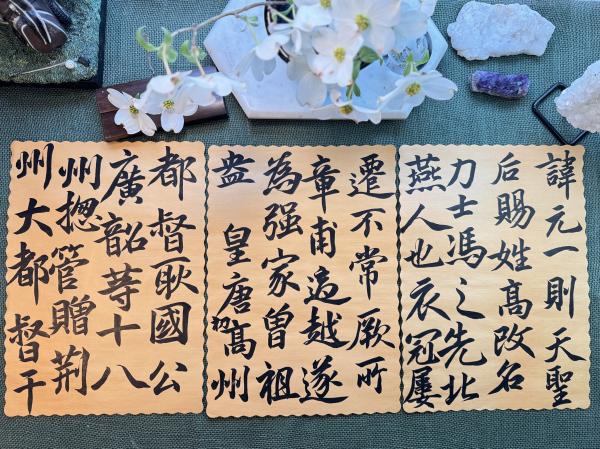 諱元一則天聖
后賜姓高改名
力士馮之先北
燕人也衣冠屢
遷不常厥所
章甫適越遂
為强家曾祖
盎 皇唐初高州
都督耿國公
廣韶等十八
州揔管贈荆
州大都督干